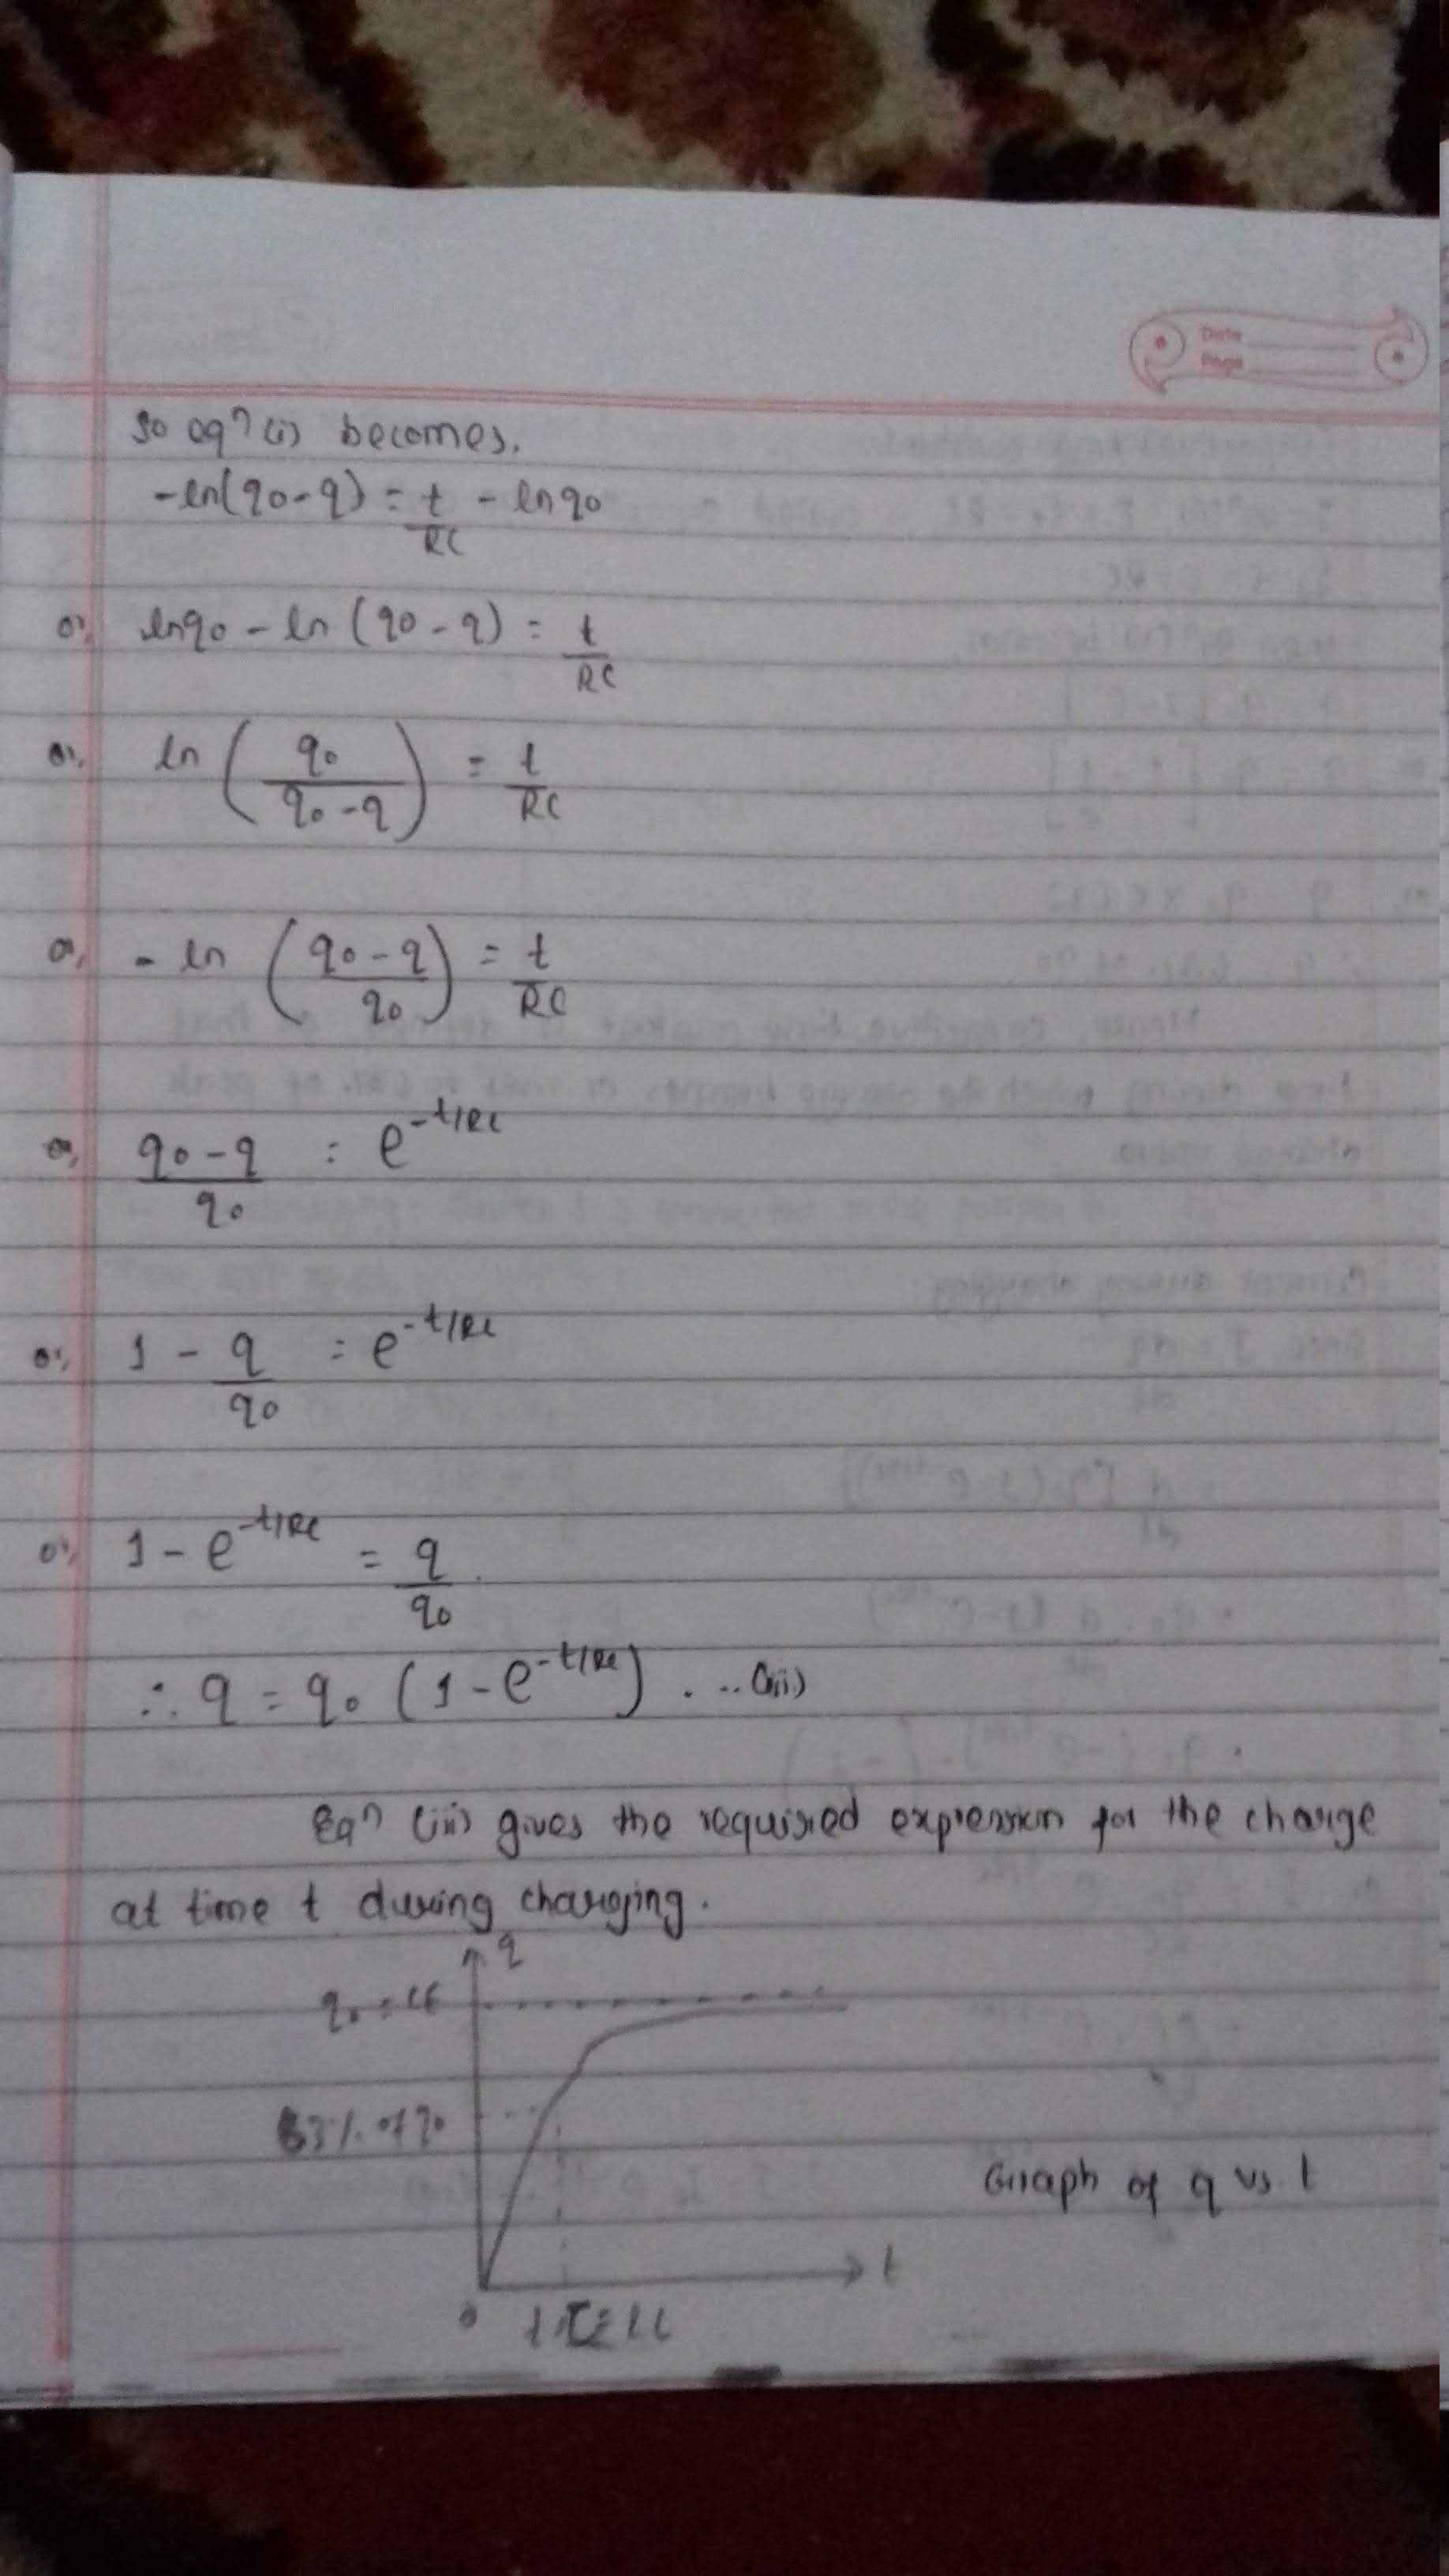 Date
Page
So eqⁿ (i) becomes,
-ln(q0-q) = t/RC - lnq0
or, lnq0 - ln (q0-q) = t/RC
or, ln (q0/(q0-q)) = t/RC
or, - ln ((q0-q)/q0) = t/RC
or, (q0-q)/q0 = e^-t/RC
or, 1 - q/q0 = e^-t/RC
or, 1 - e^-t/RC = q/q0
∴ q = q0 (1 - e^-t/RC) ... (iii)
Eqⁿ (iii) gives the required expression for the charge
at time t during charging.
q
q0 = CE
63% of q0
Graph of q vs. t
t
0